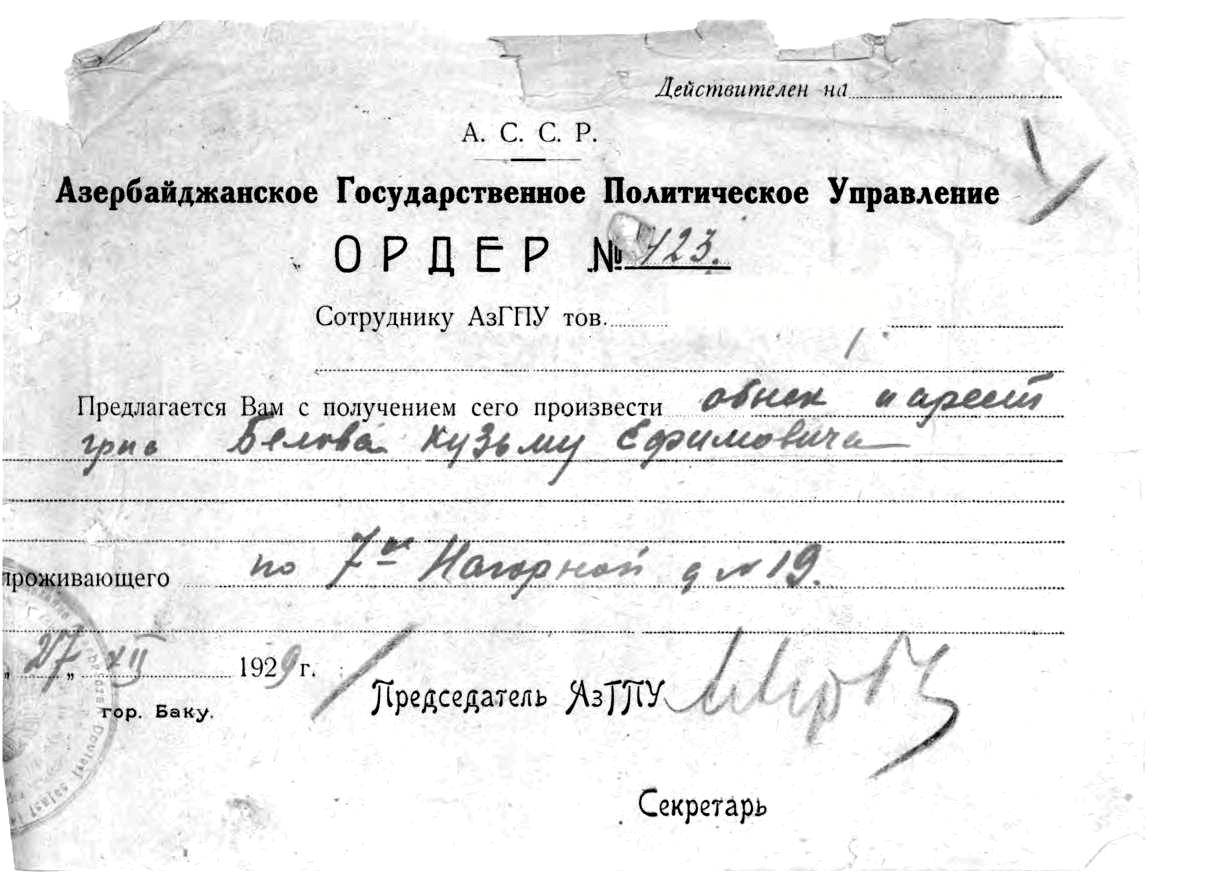 Действителен на
А. С. С. Р.
Азербайджанское Государственное Политическое Управление
ОРДЕР № 723.
Сотруднику АзГПУ тов.
Предлагается Вам с получением сего произвести обыск и арест
Белова Кузьму Ефимовича
проживающего по 7ой Нагорной д № 19.
„ 27 „ XII 1929 г.
гор. Баку.
Председатель АзГПУ
Секретарь